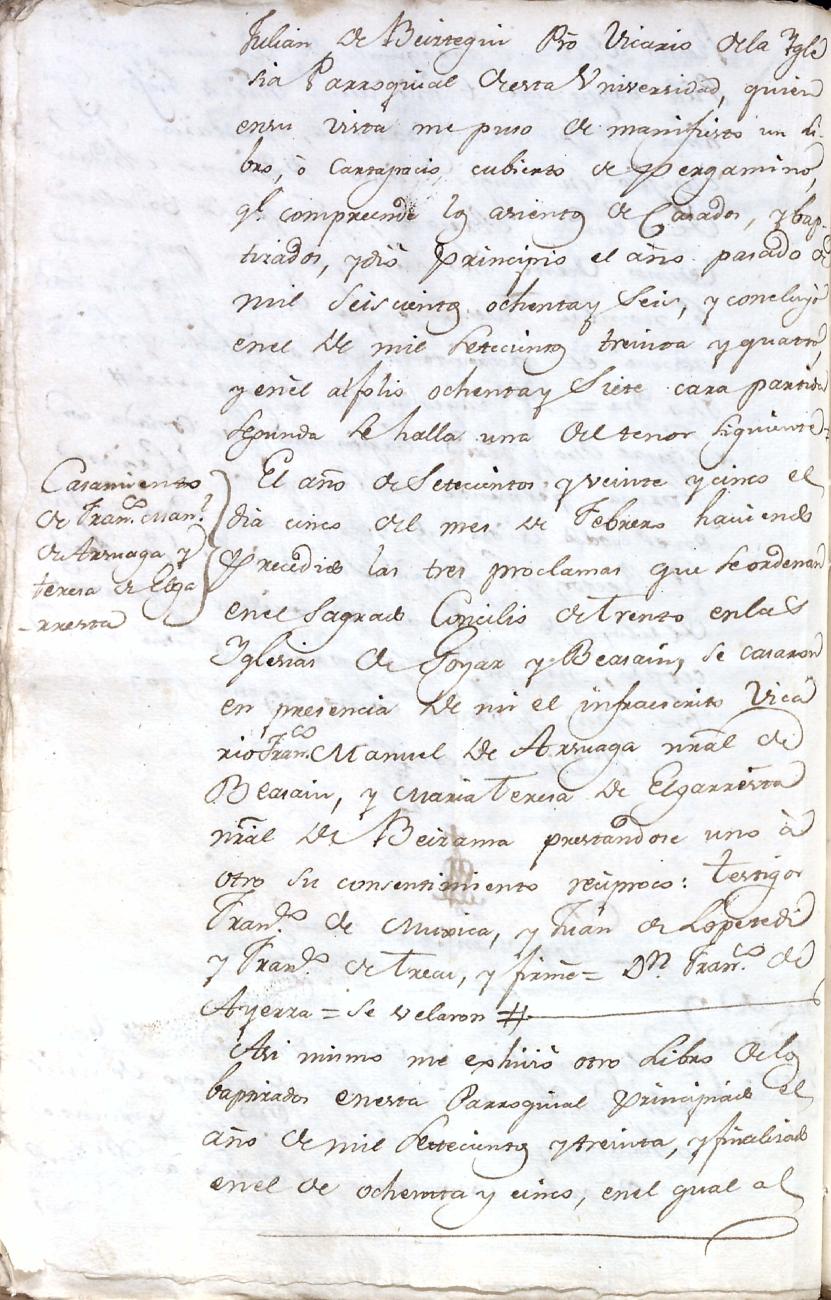 Julian de Beirtegui Pro Vicario dela Ygle
sia Parroquial desta Vniversidad, quien
ensu vista me puso de manifiesto un li-
bro, ò cartapacio cubierto de pergamino,
ql. compreende los asientos de Casados, y bap-
tizados, y dió principio el año pasado de
mil seiscientos ochenta y seis, y concluyó
enel de mil setecientos treinta y quatro,
y enel al folio ochenta y siete cara partida
segunda se halla una del tenor siguiente=
Casamiento
de Franco. Manl.
de Arsuaga y
teresa de Elga
rresta
El año de Setecientos y veinte y cinco el
dia cinco del mes de Febrero haviendo
precedido las tres proclamas que se ordenan
enel Sagrado Concilio de Trento enlas
Yglesias de Goyaz y Beasain, se casaron
en presencia de mi el infraescrito Vica
rio Franco. Manuel de Arsuaga nral de
Beasain, y Maria Teresa de Elgarresta
nral de Beizama prestandose uno à
otro su consentimiento reciproco: testigos
Franco. de Muxica, y Juan de Lopetedi
y Franco. de Trecu, y firmé= Dn. Franco. de
Ayerra = se velaron #
Asi mismo me exhivió otro Libro delos
baptizados enesta Parroquial principiado el
año de mil setecientos y treinta, y finalizado
enel de ochenta y cinco, enel qual al